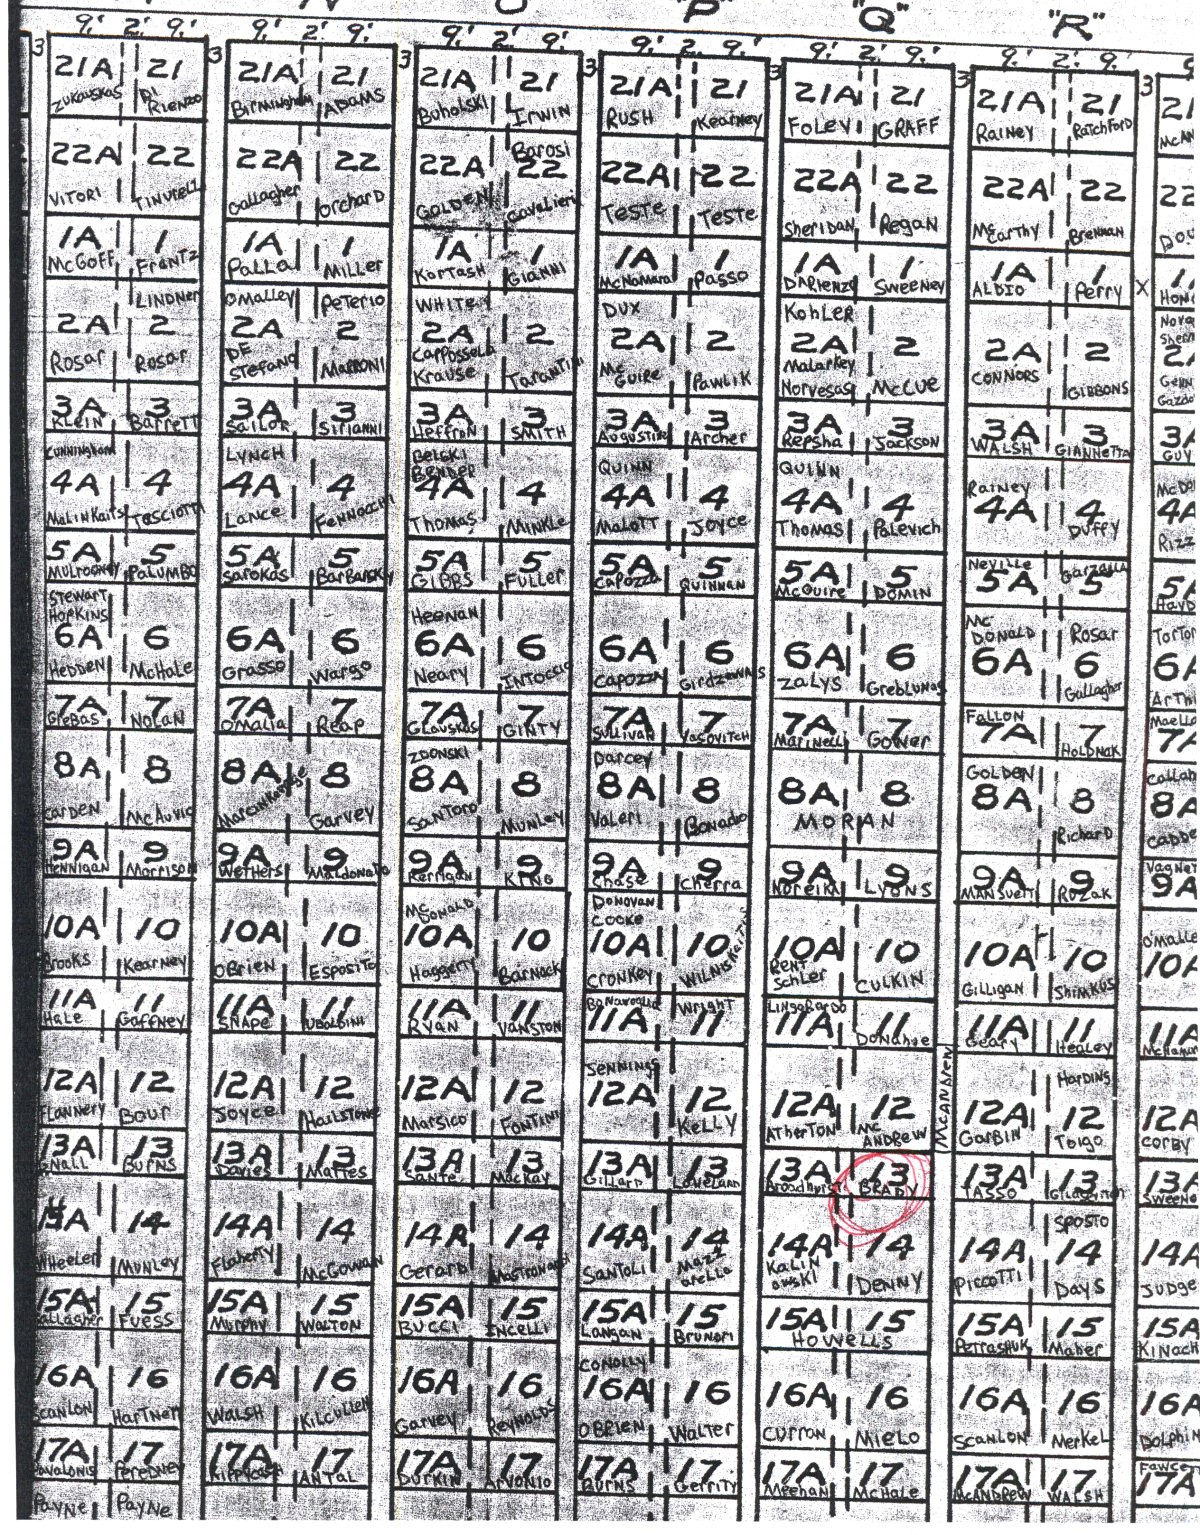 N O "P" "Q" "R"
9' 2' 9' 9' 2' 9' 9' 2' 9' 9' 2' 9' 9' 2' 9' 9' 2' 9'
3 21A 21 3 21A 21 3 21A 21 3 21A 21 3 21A 21 3 21A 21 3 21
Zukauskas Di Rienzo Birmingham ADAMS Buholski Irwin RUSH Kearney FOLEY GRAFF Rainey RatchForD McAN
Barosi
22A 22 22A 22 22A 22 22A 22 22A 22 22A 22 22
VITORI Gallagher OrcharD GOLDEN Cavalieri TESTE TESTE SherIDAN RegaN McCarthy Brennan DOU
1A 1 1A 1 1A 1 1A 1 1A 1 1A 1 X 1
McGOFF FrANTZ PaLLa MILLer Kartash GIANNI McNamara Passo DARIENZO SweeNey ALDIO Perry HON
LINDNer OMalley PeTerIO WHITE DUX KohLeR Nova
2A 2 2A 2 2A 2 2A 2 2A 2 2A 2 2
Rosar Rosar DE STeFaNO MARRONI Cappossela Krause TaranTini McGUIRE PawLIK MaLarKey Norvesas McCUE CONNORS GIBBONS
3A 3 3A 3 3A 3 3A 3 3A 3 3A 3 3A
KLeIN BarreTT SaILOR SIrIANNI HeffroN SMITH Augustine Archer Repsha JacksoN WALSH GIANNeTTa GUY
CUNNINgham LYNCH Belski BENDER QUINN QUINN Rainey McDA
4A 4 4A 4 4A 4 4A 4 4A 4 4A 4 4A
MaLINKaITs TOSCIOTTI Lance FeNNOCCHI THomAS MINKLe MaLOTT Joyce Thomas PaLevich DUffy RIZZ
5A 5 5A 5 5A 5 5A 5 5A 5 Neville Garzella 5A 5 5A
MULrooney PaLUMBO SaroKas BarBarsky GIBBS FULLer Capozza QUINNAN McGuire DOMIN HavD
STEWART HOPKINS HEENAN McDONALD Rosar TorTor
6A 6 6A 6 6A 6 6A 6 6A 6 6A 6 6A
HeDDeN McHaLe Grasso Wargo Neary INTOCCIO Capozza Girdzownas zaLYS GrebLUNas Gallagher ArThu
7A 7 7A 7 7A 7 7A 7 7A 7 FALLON 7A 7 Maello 7A
GreBas NoLaN OMaLIa Reap GLauskas GINTY SULLIVaN Yasovitch MarINeLLI Gower HOLDNaK
ZDONSKI Darcey GOLDEN CaLLah
8A 8 8A 8 8A 8 8A 8 8A 8 8A 8 8A
CarDEN McAuvis Garvey SaNTORO MUNLey VaLerI Bonado MORAN RicharD CaDDe
9A 9 9A 9 9A 9 9A 9 9A 9 9A 9 Vagner 9A
HeNNIgaN MorrisoN WeTHers MaLDoNaDo KerrIgaN KING Chase Cherra NoreIKa LYONS MANSueTI Rozak
McDONALD DoNovaN COOKE O'MaLLe
10A 10 10A 10 10A 10 10A 10 10A 10 10A 10 10A
BrooKs KearNey OBrIeN ESPOSITO Haggerty BarNack CRONKEY ReNTschLer CULKIN GILLIgaN ShIMKUS
Wright LINgoBarDo
11A 11 11A 11 11A 11 11A 11 11A 11 11A 11 11A
HaLe GaffNey SNAPE UBALDINI RYAN VANSTON DoNahue Geary HeaLey
JENNINGS McANDREW HarDINg
12A 12 12A 12 12A 12 12A 12 12A 12 12A 12 12A
FLANNERY BOUR Joyce HaILSToNe Marsico FoNTINI KELLY AThERTON McANDREW GarBIN Toigo CORBY
13A 13 13A 13 13A 13 13A 13 13A 13 13A 13 13A
GNaLL BURNS Davies MaTTes SaNTe Mackay GILLarD LoveLaNN BroaDhurst BRADY TASSO SweeNe
SPOSTO
14A 14 14A 14 14A 14 14A 14 14A 14 14A 14 14A
WheeLer MUNLEY FLaherTy McGowaN GerarD MasTroNarDI SaNToLI MazzareLLa KaLINowsKI DENNY PICCOTTI DayS JUDGe
15A 15 15A 15 15A 15 15A 15 15A 15 15A 15 15A
GaLLagher FUESS Murphy WALTON BUCCI INCELLI Langan BrUNorI HOWELLS PeTrashUK Maher KINach
CONOLLY
16A 16 16A 16 16A 16 16A 16 16A 16 16A 16 16A
SCANLON HarTNeTT WALSH KILCULLeN Garvey ReyNoLDS OBRIEN WaLTer CURRON MIeLo SCANLON MerKeL DOLphIN
17A 17 17A 17 17A 17 17A 17 17A 17 17A 17 Fawcett 17A
SavaLoNIS PereDNey ANTaL DURKIN ArvoNIo BURNS GerrITy MeehaN McHaLe McANDREW WALSH
PayNe PayNe